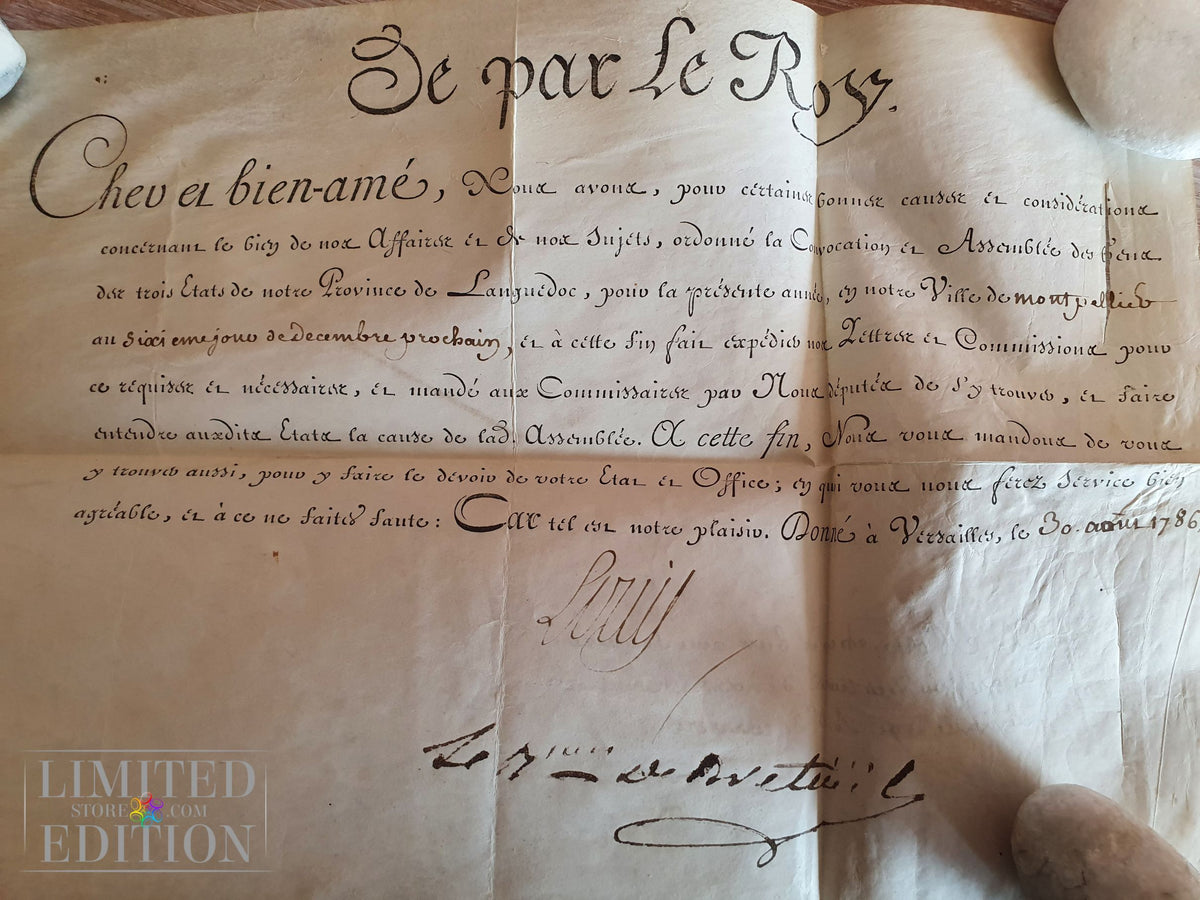 De par Le Roy.
Cher et bien-amé, Nous avons, pour certaines bonnes causes et considérations
concernant le bien de nos Affaires et de nos Sujets, ordonné la Convocation et Assemblée des Gens
des trois Etats de notre Province de Languedoc, pour la présente année, en notre Ville de montpellier
au sixieme jour de decembre prochain, et à cette fin fait expédier nos Lettres et Commissions pour
ce requises et nécessaires, et mandé aux Commissaires par Nous députés de s'y trouver, et faire
entendre auxdits Etats la cause de lad. Assemblée. A cette fin, Nous vous mandons de vous
y trouver aussi, pour y faire le devoir de votre Etat et Office; en qui vous nous ferez Service bien
agréable, et à ce ne faites faute: Car tel est notre plaisir. Donné à Versailles, le 30. août 1786
Louis
Le Bon de Breteüil
LIMITED
STORE .COM
EDITION